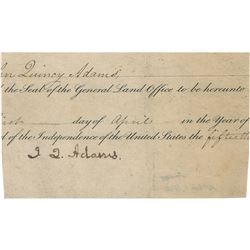 hn Quincy Adams,
the Seal of the General Land Office to be hereunto
day of April in the Year of
of the Independence of the United States the fiftieth
J. Q. Adams.